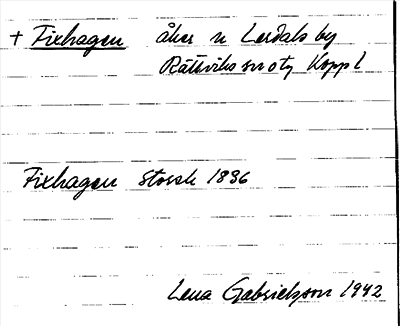 + Fixhagen åker n Lerdals by
Rättviks sn oty Koppl
Fixhagen Storsk 1896
Lena Gabrielsson 1942